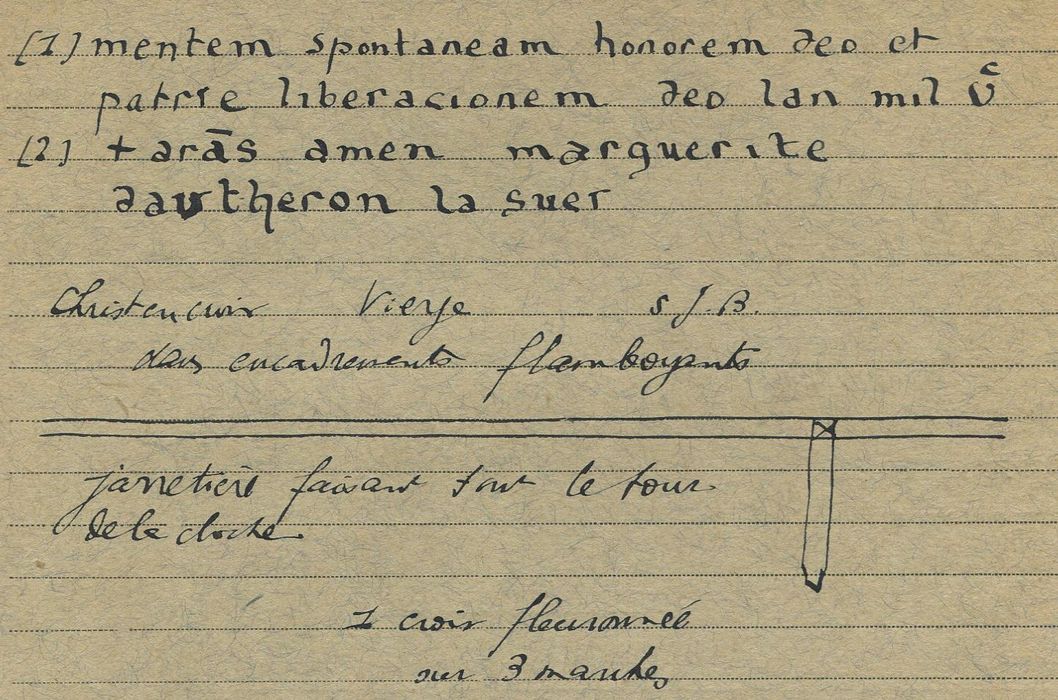 [1] mentem spontaneam honorem deo et
patrie liberacionem deo lan mil v̄ c
[2] + arās amen marguerite
dautheron la suer
Christ en croix Vierge S J.B.
dans encadrements flamboyants
jarretière faisant tout le tour
de la cloche
1 croix fleuronnée
sur 3 marches